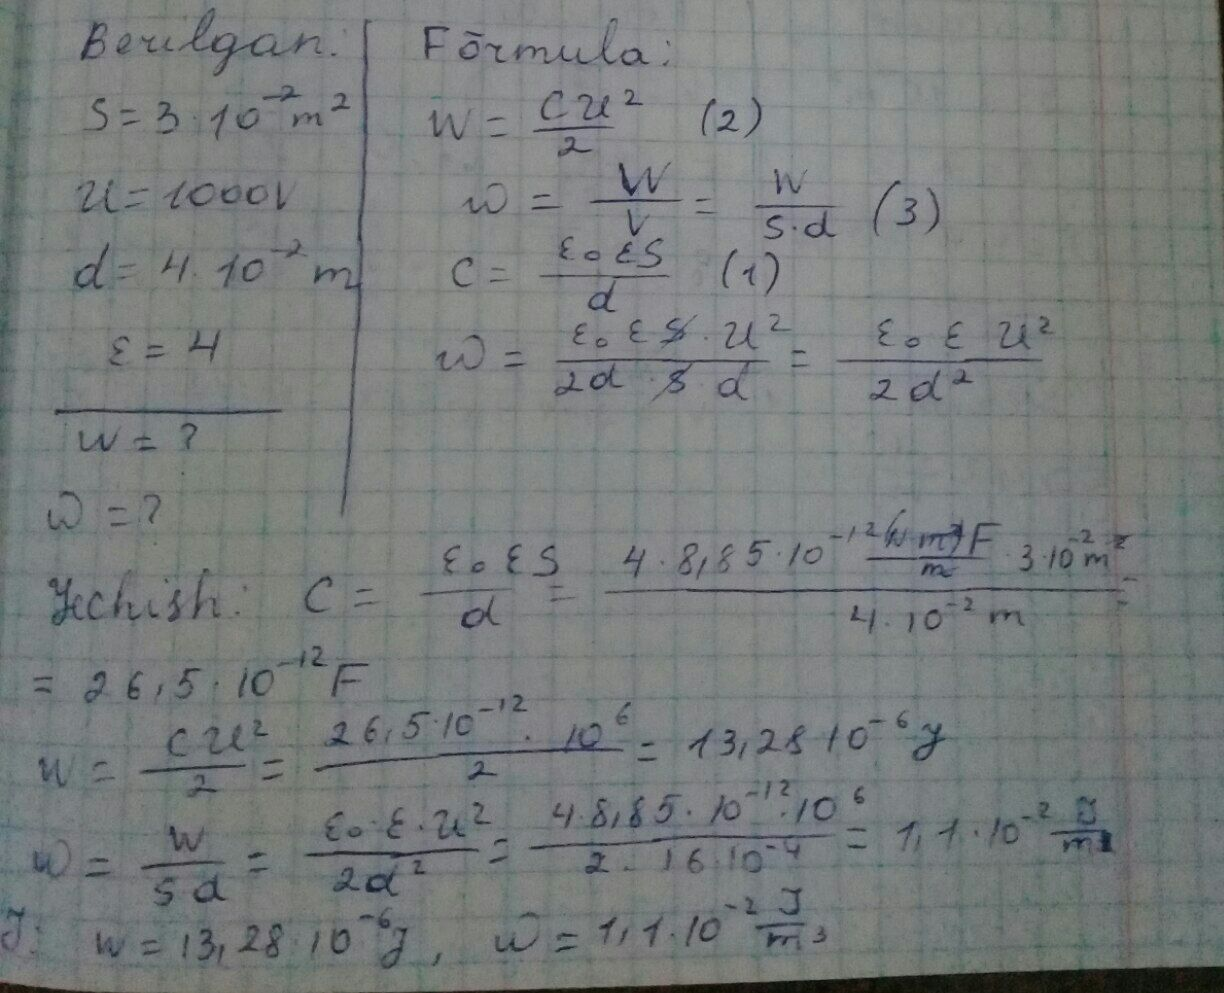 Berilgan:
S = 3·10⁻² m²
U = 1000V
d = 4·10⁻² m
ε = 4
W = ?
ω = ?
Formula:
W = CU²/2 (2)
ω = W/V = W/(S·d) (3)
C = ε₀εS/d (1)
ω = ε₀εS·U²/(2d·S·d) = ε₀εU²/(2d²)
Yechish: C = ε₀εS/d = (4·8,85·10⁻¹² F/m · 3·10⁻² m²)/(4·10⁻² m) =
= 26,5·10⁻¹² F
W = CU²/2 = (26,5·10⁻¹²·10⁶)/2 = 13,28 10⁻⁶ J
ω = W/(Sd) = ε₀·ε·U²/(2d²) = (4·8,85·10⁻¹²·10⁶)/(2·16·10⁻⁴) = 1,1·10⁻² J/m³
J: W = 13,28·10⁻⁶ J, ω = 1,1·10⁻² J/m³